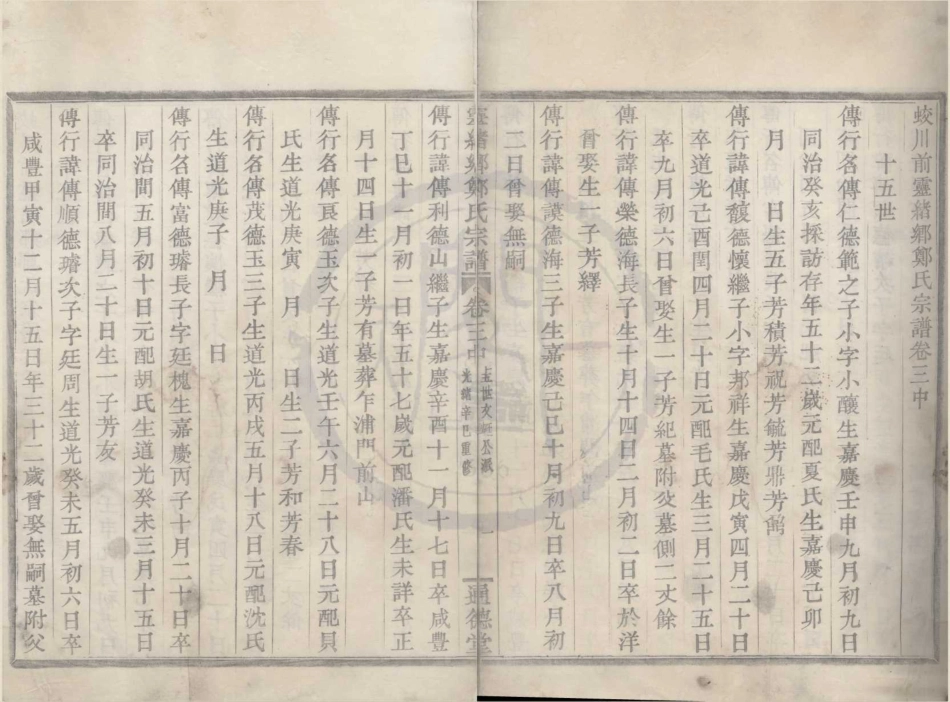 蛟川前靈緒鄉鄭氏宗譜卷三中
十五世
傳行名傳仁德範之子小字小釀生嘉慶壬申九月初九日
同治癸亥採訪存年五十二歲元配夏氏生嘉慶己卯
月　日生五子芳積芳祝芳毓芳鼎芳
傳行諱傳馥德懷繼子小字邦祥生嘉慶戊寅四月二十日
卒道光己酉閏四月二十日元配毛氏生三月二十五日
卒九月初六日曾娶生一子芳紀墓附父墓側二丈餘
傳行諱傳榮德海長子生十月十四日二月初二日卒於洋
曾娶生一子芳繹
傳行諱傳謨德海三子生嘉慶己巳十月初九日卒八月初
二日曾娶無嗣
靈緒鄉鄭氏宗譜　卷三中　一　通德堂
光緒辛巳重修
傳行諱傳利德山繼子生嘉慶辛酉十一月十七日卒咸豐
丁巳十一月初一日年五十七歲元配潘氏生未詳卒正
月十四日生一子芳有墓葬乍浦門前山
傳行名傳良德玉次子生道光壬午六月二十八日元配貝
氏生道光庚寅　月　日生二子芳和芳春
傳行名傳茂德玉三子生道光丙戌五月十八日元配沈氏
生道光庚子　月　日
傳行名傳富德璿長子字廷槐生嘉慶丙子十月二十日卒
同治間五月初十日元配胡氏生道光癸未三月十五日
卒同治間八月二十日生一子芳友
傳行諱傳順德璿次子字廷周生道光癸未五月初六日卒
咸豐甲寅十二月十五日年三十二歲曾娶無嗣墓附父